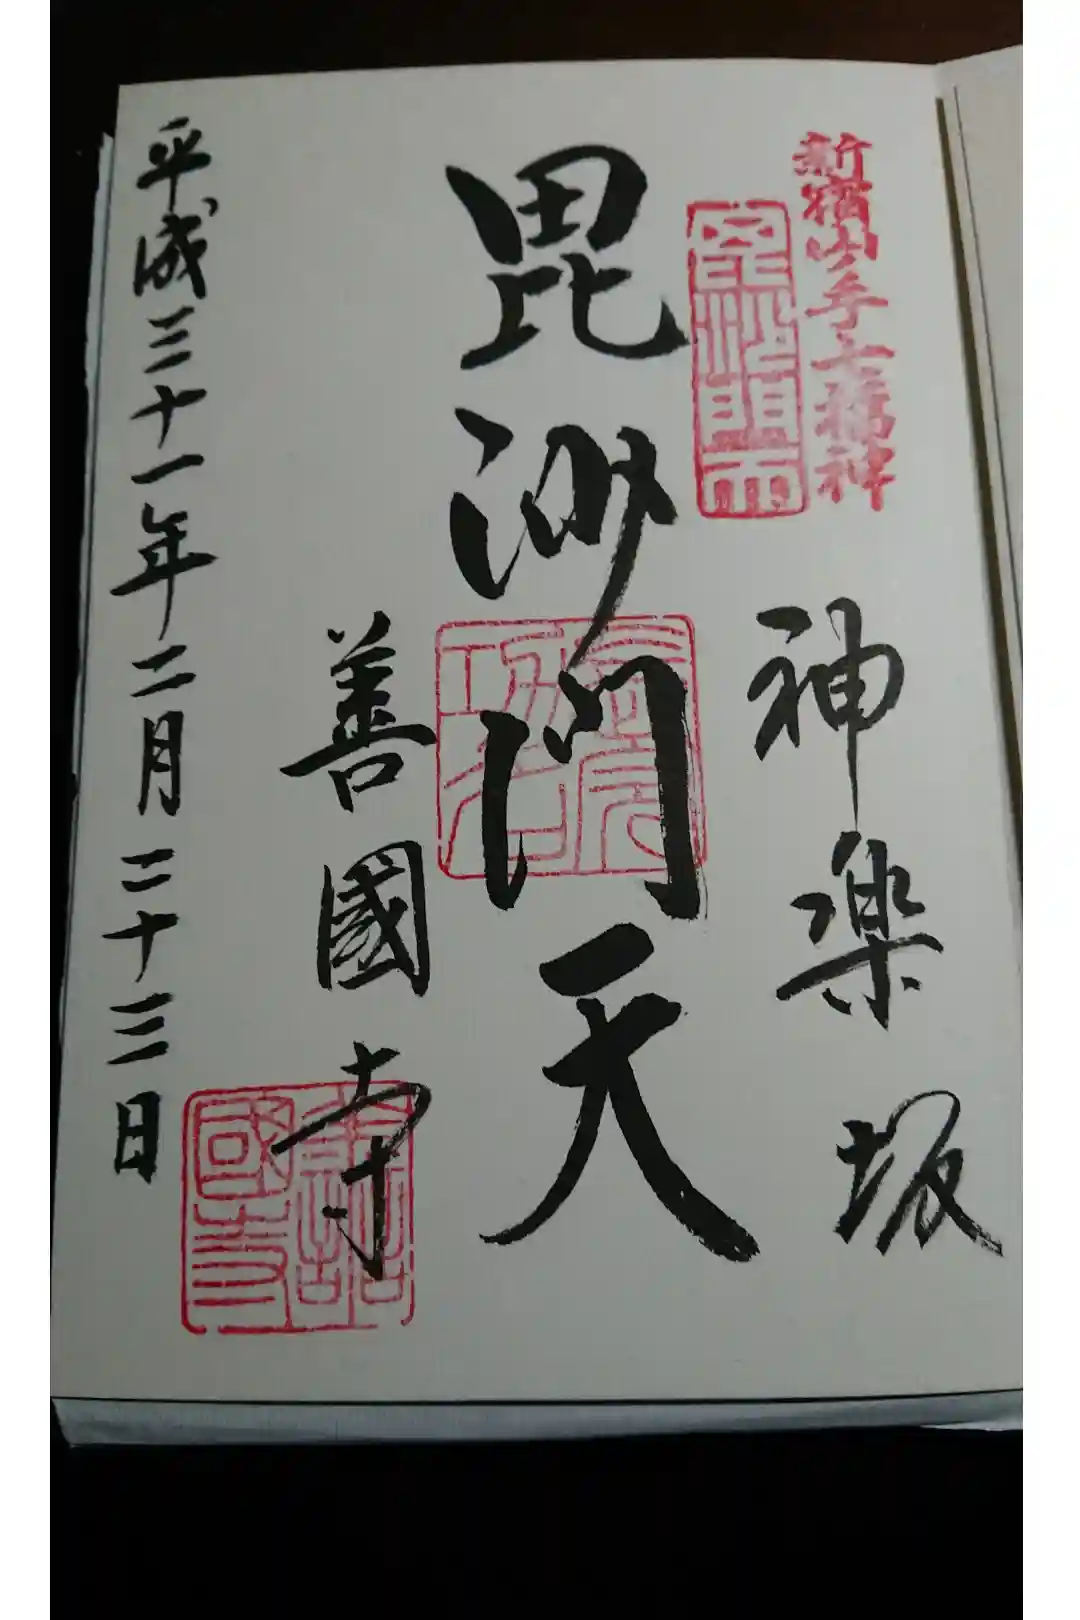 新宿山之手七福神
毘沙門天
神楽坂
毘沙門天
善國寺
平成三十一年二月二十三日